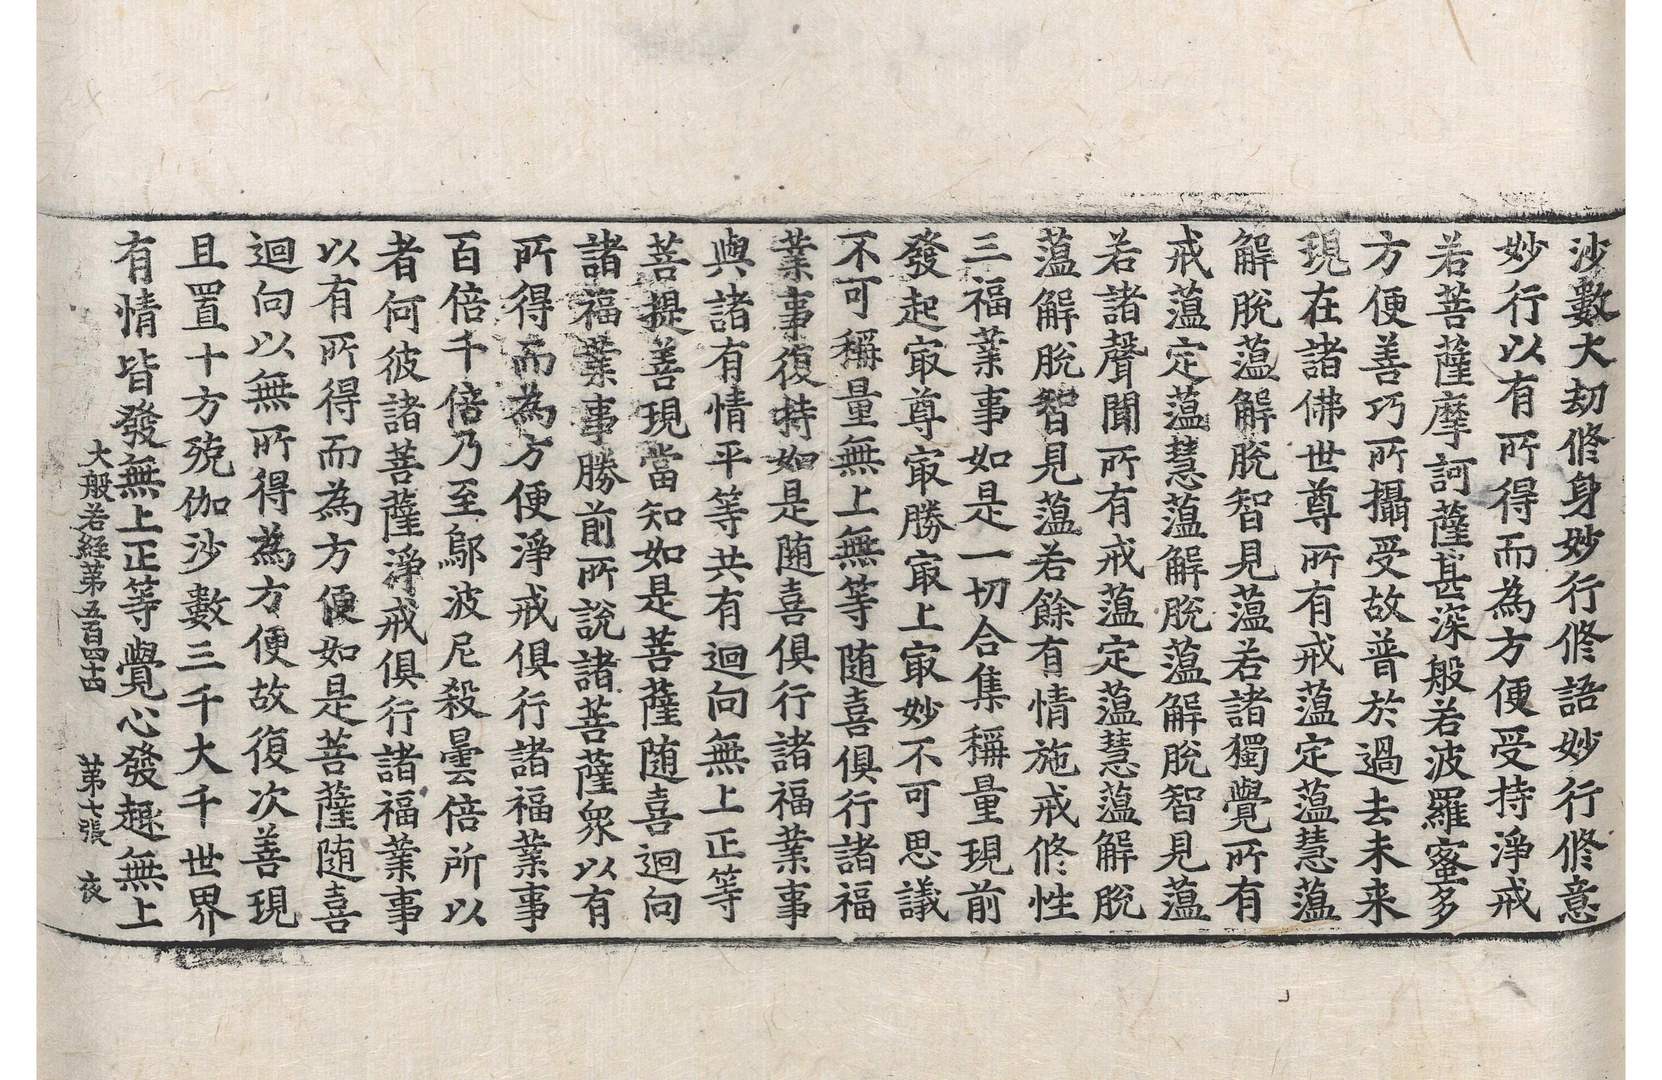 沙數大劫修身妙行修語妙行修意
妙行以有所得而為方便受持淨戒
若菩薩摩訶薩甚深般若波羅蜜多
方便善巧所攝受故普於過去未来
現在諸佛世尊所有戒蕰定蕰慧蕰
解脫蕰解脫智見蕰若諸獨覺所有
戒蕰定蕰慧蕰解脫蕰解脫智見蕰
若諸聲聞所有戒蕰定蕰慧蕰解脫
蕰解脫智見蕰若餘有情施戒修性
三福業事如是一切合集稱量現前
發起㝡尊㝡勝㝡上㝡妙不可思議
不可稱量無上無等随喜俱行諸福
業事復持如是随喜俱行諸福業事
與諸有情平等共有迴向無上正等
菩提善現當知如是菩薩随喜迴向
諸福業事勝前所說諸菩薩衆以有
所得而為方便淨戒俱行諸福業事
百倍千倍乃至鄔波尼殺曇倍所以
者何彼諸菩薩淨戒俱行諸福業事
以有所得而為方便如是菩薩随喜
迴向以無所得為方便故復次善現
且置十方殑伽沙數三千大千世界
有情皆發無上正等覺心發趣無上
大般若經第五百四十四 第七張 夜